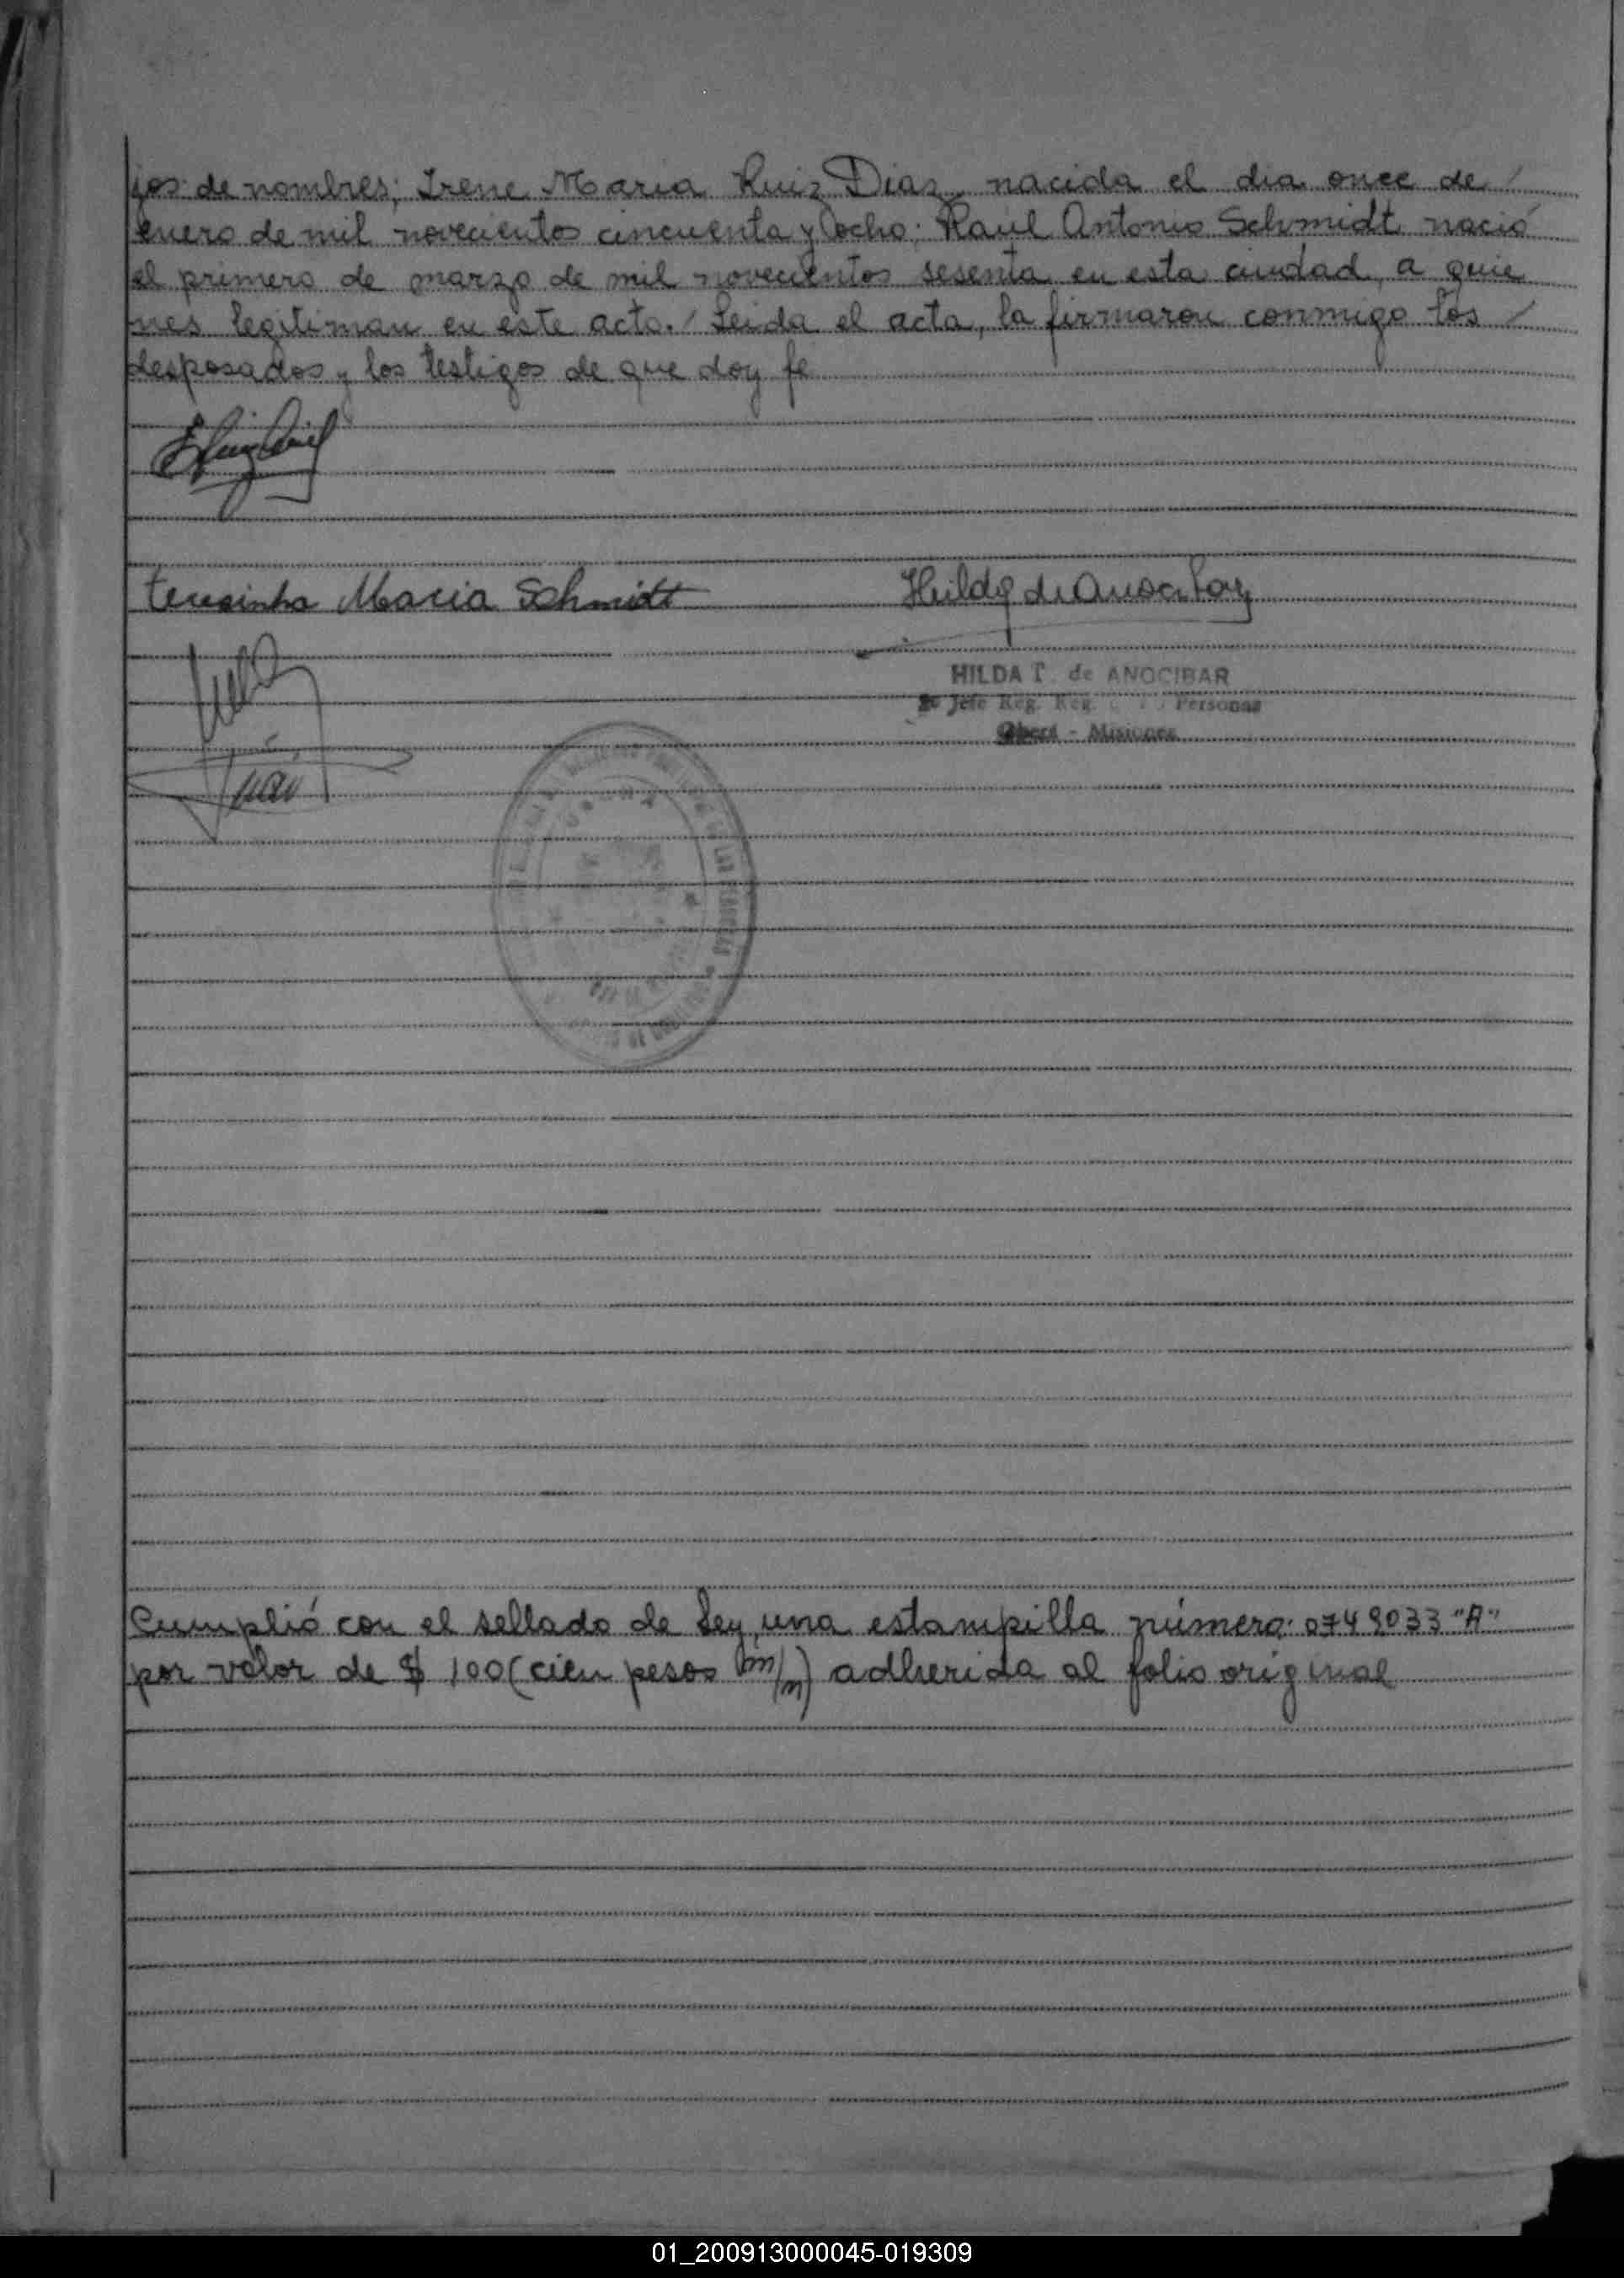 jos de nombres; Irene Maria Ruiz Diaz, nacida el dia once de /
enero de mil novecientos cincuenta y ocho; Raul Antonio Schmidt, nació
el primero de marzo de mil novecientos sesenta en esta ciudad, a quie
nes legitiman en este acto. / Leida el acta, la firmaron conmigo los /
desposados y los testigos de que doy fe
teresinha Maria Schmidt
Hilda de Anocibar
HILDA T. de ANOCIBAR
Jefe Reg. Personas
Oberá - Misiones
Cumplió con el sellado de Ley, una estampilla número: 0749033 "A"
por valor de $ 100 (cien pesos m/n) adherida al folio original
01_200913000045-019309